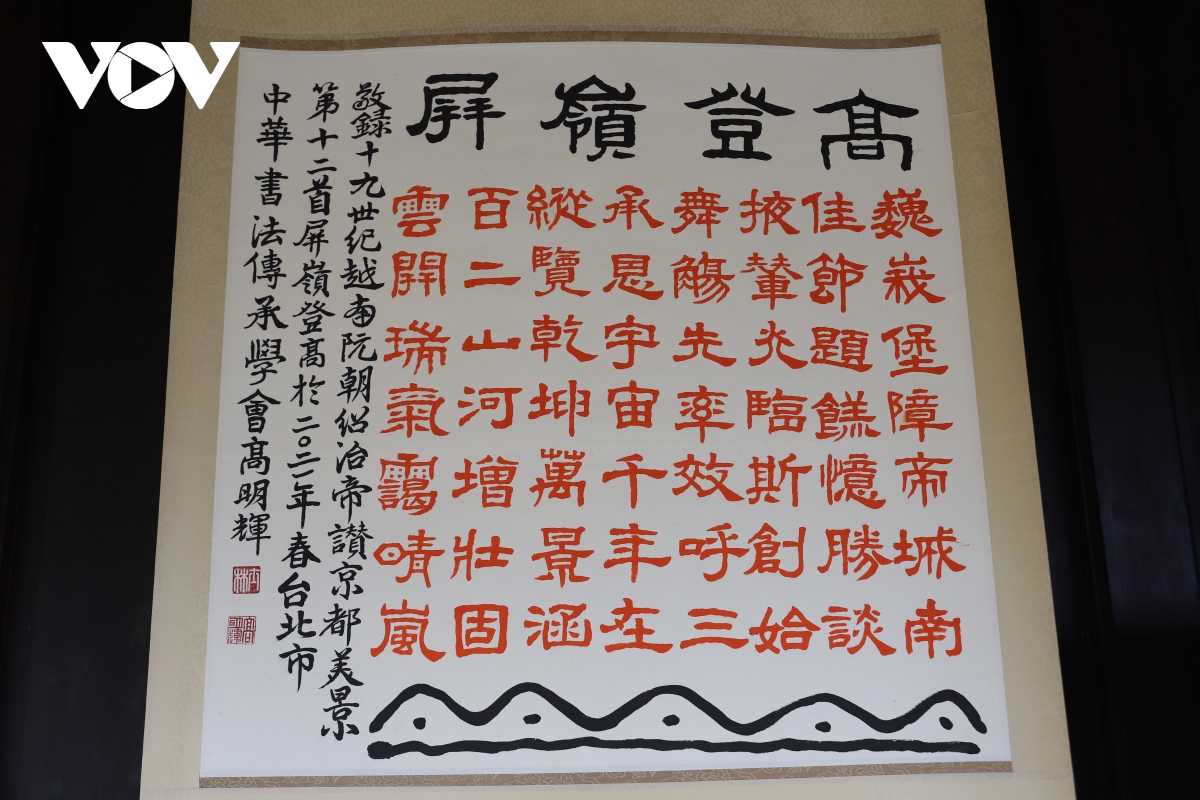 VOV
屏嶺登髙
巍峩堡障帝城南
佳節題餻憶勝談
掖輦兆臨斯創始
舞觴先率效呼三
承恩宇宙千年在
縱覽乾坤萬景涵
百二山河增壯固
雲開瑞氣靄晴嵐
敬録十九世紀越南阮朝紹治帝讚京都美景
第十二首屏嶺登髙於二〇二一年春台北市
中華書法傳承學會髙明輝